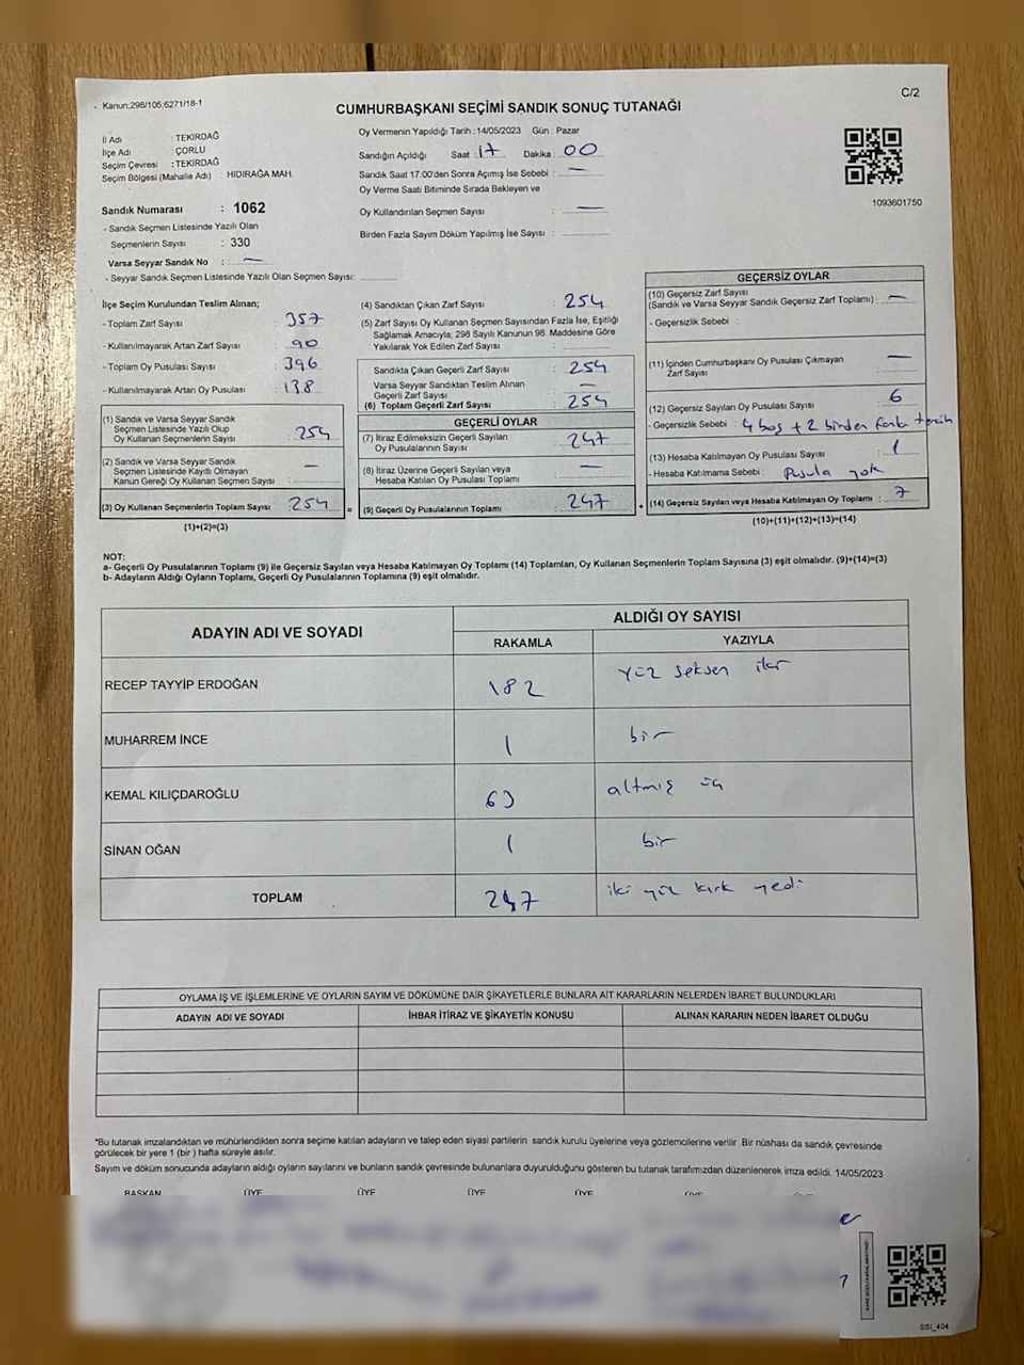 Kanun:298/105;6271/18-1
C/2
CUMHURBAŞKANI SEÇİMİ SANDIK SONUÇ TUTANAĞI
İl Adı : TEKİRDAĞ
İlçe Adı : ÇORLU
Seçim Çevresi : TEKİRDAĞ
Seçim Bölgesi (Mahalle Adı) : HIDIRAĞA MAH.
Sandık Numarası : 1062
- Sandık Seçmen Listesinde Yazılı Olan
Seçmenlerin Sayısı : 330
Varsa Seyyar Sandık No : —
- Seyyar Sandık Seçmen Listesinde Yazılı Olan Seçmen Sayısı:
Oy Vermenin Yapıldığı Tarih : 14/05/2023 Gün : Pazar
Sandığın Açıldığı Saat 17 Dakika : 00
Sandık Saat 17:00'den Sonra Açımış İse Sebebi : —
Oy Verme Saati Bitiminde Sırada Bekleyen ve
Oy Kullandırılan Seçmen Sayısı : —
Birden Fazla Sayım Döküm Yapılmış İse Sayısı :
1093601750
İlçe Seçim Kurulundan Teslim Alınan;
- Toplam Zarf Sayısı : 357
- Kullanılmayarak Artan Zarf Sayısı : 90
- Toplam Oy Pusulası Sayısı : 396
- Kullanılmayarak Artan Oy Pusulası : 138
(1) Sandık ve Varsa Seyyar Sandık
Seçmen Listesinde Yazılı Olup
Oy Kullanan Seçmenlerin Sayısı : 254
(2) Sandık ve Varsa Seyyar Sandık
Seçmen Listesinde Kayıtlı Olmayan
Kanun Gereği Oy Kullanan Seçmen Sayısı : —
(3) Oy Kullanan Seçmenlerin Toplam Sayısı : 254
(1)+(2)=(3)
(4) Sandıktan Çıkan Zarf Sayısı : 254
(5) Zarf Sayısı Oy Kullanan Seçmen Sayısından Fazla İse, Eşitliği
Sağlamak Amacıyla; 298 Sayılı Kanunun 98. Maddesine Göre
Yakılarak Yok Edilen Zarf Sayısı :
Sandıkta Çıkan Geçerli Zarf Sayısı : 254
Varsa Seyyar Sandıktan Teslim Alınan
Geçerli Zarf Sayısı : —
(6) Toplam Geçerli Zarf Sayısı : 254
GEÇERLİ OYLAR
(7) İtiraz Edilmeksizin Geçerli Sayılan
Oy Pusulalarının Sayısı : 247
(8) İtiraz Üzerine Geçerli Sayılan veya
Hesaba Katılan Oy Pusulası Toplamı : —
(9) Geçerli Oy Pusulalarının Toplamı : 247
GEÇERSİZ OYLAR
(10) Geçersiz Zarf Sayısı
(Sandık ve Varsa Seyyar Sandık Geçersiz Zarf Toplamı) : —
- Geçersizlik Sebebi :
(11) İçinden Cumhurbaşkanı Oy Pusulası Çıkmayan
Zarf Sayısı : —
(12) Geçersiz Sayılan Oy Pusulası Sayısı : 6
- Geçersizlik Sebebi : 4 boş + 2 birden fazla tercih
(13) Hesaba Katılmayan Oy Pusulası Sayısı : 1
- Hesaba Katılmama Sebebi : Pusula yok
(14) Geçersiz Sayılan veya Hesaba Katılmayan Oy Toplamı : 7
(10)+(11)+(12)+(13)=(14)
NOT:
a- Geçerli Oy Pusulalarının Toplamı (9) ile Geçersiz Sayılan veya Hesaba Katılmayan Oy Toplamı (14) Toplamları, Oy Kullanan Seçmenlerin Toplam Sayısına (3) eşit olmalıdır. (9)+(14)=(3)
b- Adayların Aldığı Oyların Toplamı, Geçerli Oy Pusulalarının Toplamına (9) eşit olmalıdır.
ADAYIN ADI VE SOYADI
ALDIĞI OY SAYISI
RAKAMLA YAZIYLA
RECEP TAYYİP ERDOĞAN 182 Yüz seksen iki
MUHARREM İNCE 1 bir
KEMAL KILIÇDAROĞLU 63 altmış üç
SİNAN OĞAN 1 bir
TOPLAM 247 iki yüz kırk yedi
OYLAMA İŞ VE İŞLEMLERİNE VE OYLARIN SAYIM VE DÖKÜMÜNE DAİR ŞİKAYETLERLE BUNLARA AİT KARARLARIN NELERDEN İBARET BULUNDUKLARI
ADAYIN ADI VE SOYADI İHBAR İTİRAZ VE ŞİKAYETİN KONUSU ALINAN KARARIN NEDEN İBARET OLDUĞU
*Bu tutanak imzalandıktan ve mühürlendikten sonra seçime katılan adayların ve talep eden siyasi partilerin sandık kurulu üyelerine veya gözlemcilerine verilir. Bir nüshası da sandık çevresinde
görülecek bir yere 1 (bir) hafta süreyle asılır.
Sayım ve döküm sonucunda adayların aldığı oyların sayılarını ve bunların sandık çevresinde bulunanlara duyurulduğunu gösteren bu tutanak tarafımızdan düzenlenerek imza edildi. 14/05/2023
BAŞKAN ÜYE ÜYE ÜYE ÜYE ÜYE ÜYE
SSI_404